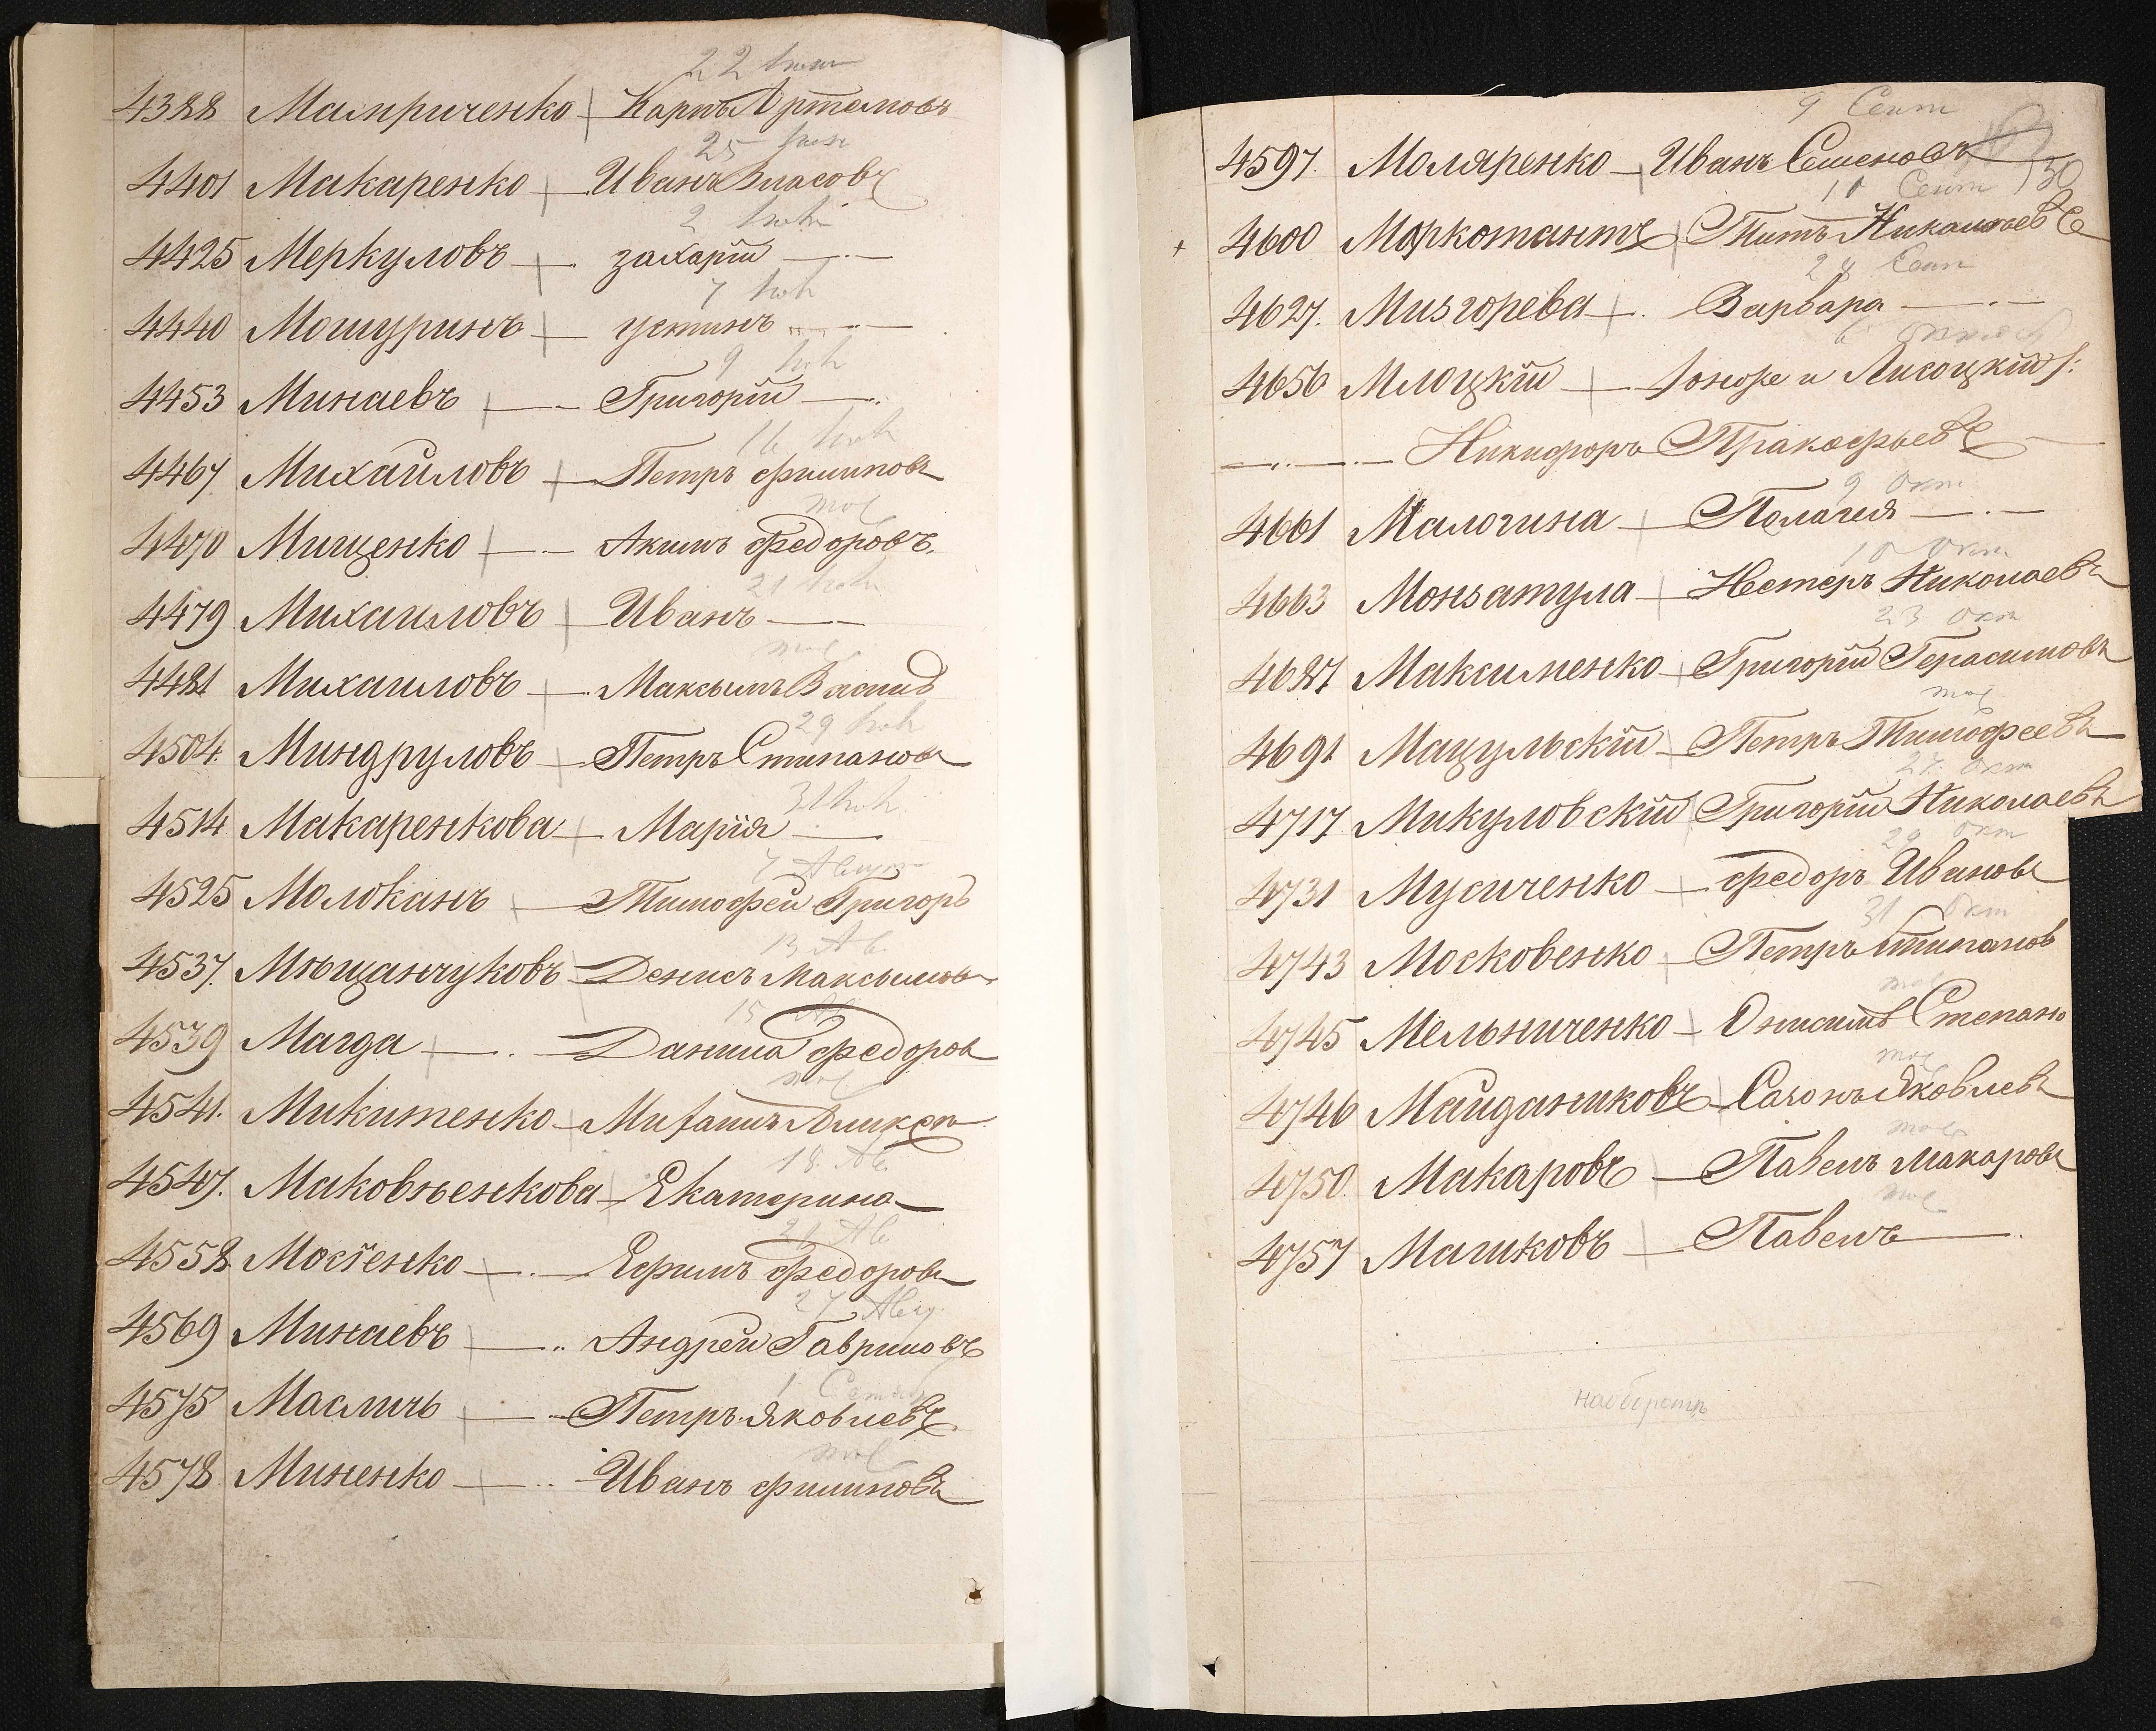 22 Іюня
4388 Мамриченко — Карпъ Артемовъ
25 Іюня
4401 Макаренко — Иванъ Власовъ
2 Іюля
4425 Меркуловъ — захарій —
7 Іюля
4440 Мошуринъ — устинъ —
9 Іюля
4453 Минаевъ — Григорій —
16 Іюля
4467 Михайловъ — Петръ филиповъ
4470 Мищенко — Акимъ федоровъ.
21 Іюля
4479 Михаиловъ — Иванъ —
4481 Михаиловъ — Максымъ
29 Іюля
4504. Миндруловъ — Петръ Стипановъ
31 Іюля
4514 Макаренкова — Марія —
7 Август
4525 Молоканъ — Тимофей Григорь
13 Ав.
4537. Мѣщанчуковъ — Денисъ Максымовъ
15 Ав
4539 Магда — Данила федоров
4541. Микитенко —
18 Ав.
4547. Маковѣенкова — Екатерина
21 Ав
4558 Мосѣенко — Ефимъ федоровъ
27 Авгу.
4569 Минаевъ — Андрей Гавриловъ
1 Сентяб
4575 Масличь — Петръ Яковлевъ
4578 Миненко — Иванъ филиповъ
9 Сент
4597. Моляренко — Иванъ Семеновъ
130
10 Сент
+ 4600 Моркотантъ Титъ Никалаевъ
28 Сент
4627. Мизгорева — Варвара —
6 октяб
4656 Млоцкій — Лисоцкій
— Никифоръ Пракофьевъ —
9 Окт
4661 Малогина — Полагея —
10 Окт
4663 Монзатула — Нестеръ Николаевъ
23 Окт
4687 Максименко — Григорій Герасимовъ
4691 Мацульскій — Петръ Тимофеевъ
27. Окт
4717 Микуловскій Григорій Николаевъ
29 Окт
4731 Мусиченко — федоръ Ивановъ
31 Окт
4743 Московенко — Петръ Стипанов
4745 Мельниченко — Онисимъ Степано
4746 Майданиковъ — Сазонъ Яковлевъ
4750. Макаровъ — Павелъ Макаровъ
4757 Машковъ — Павелъ —
наоборотъ